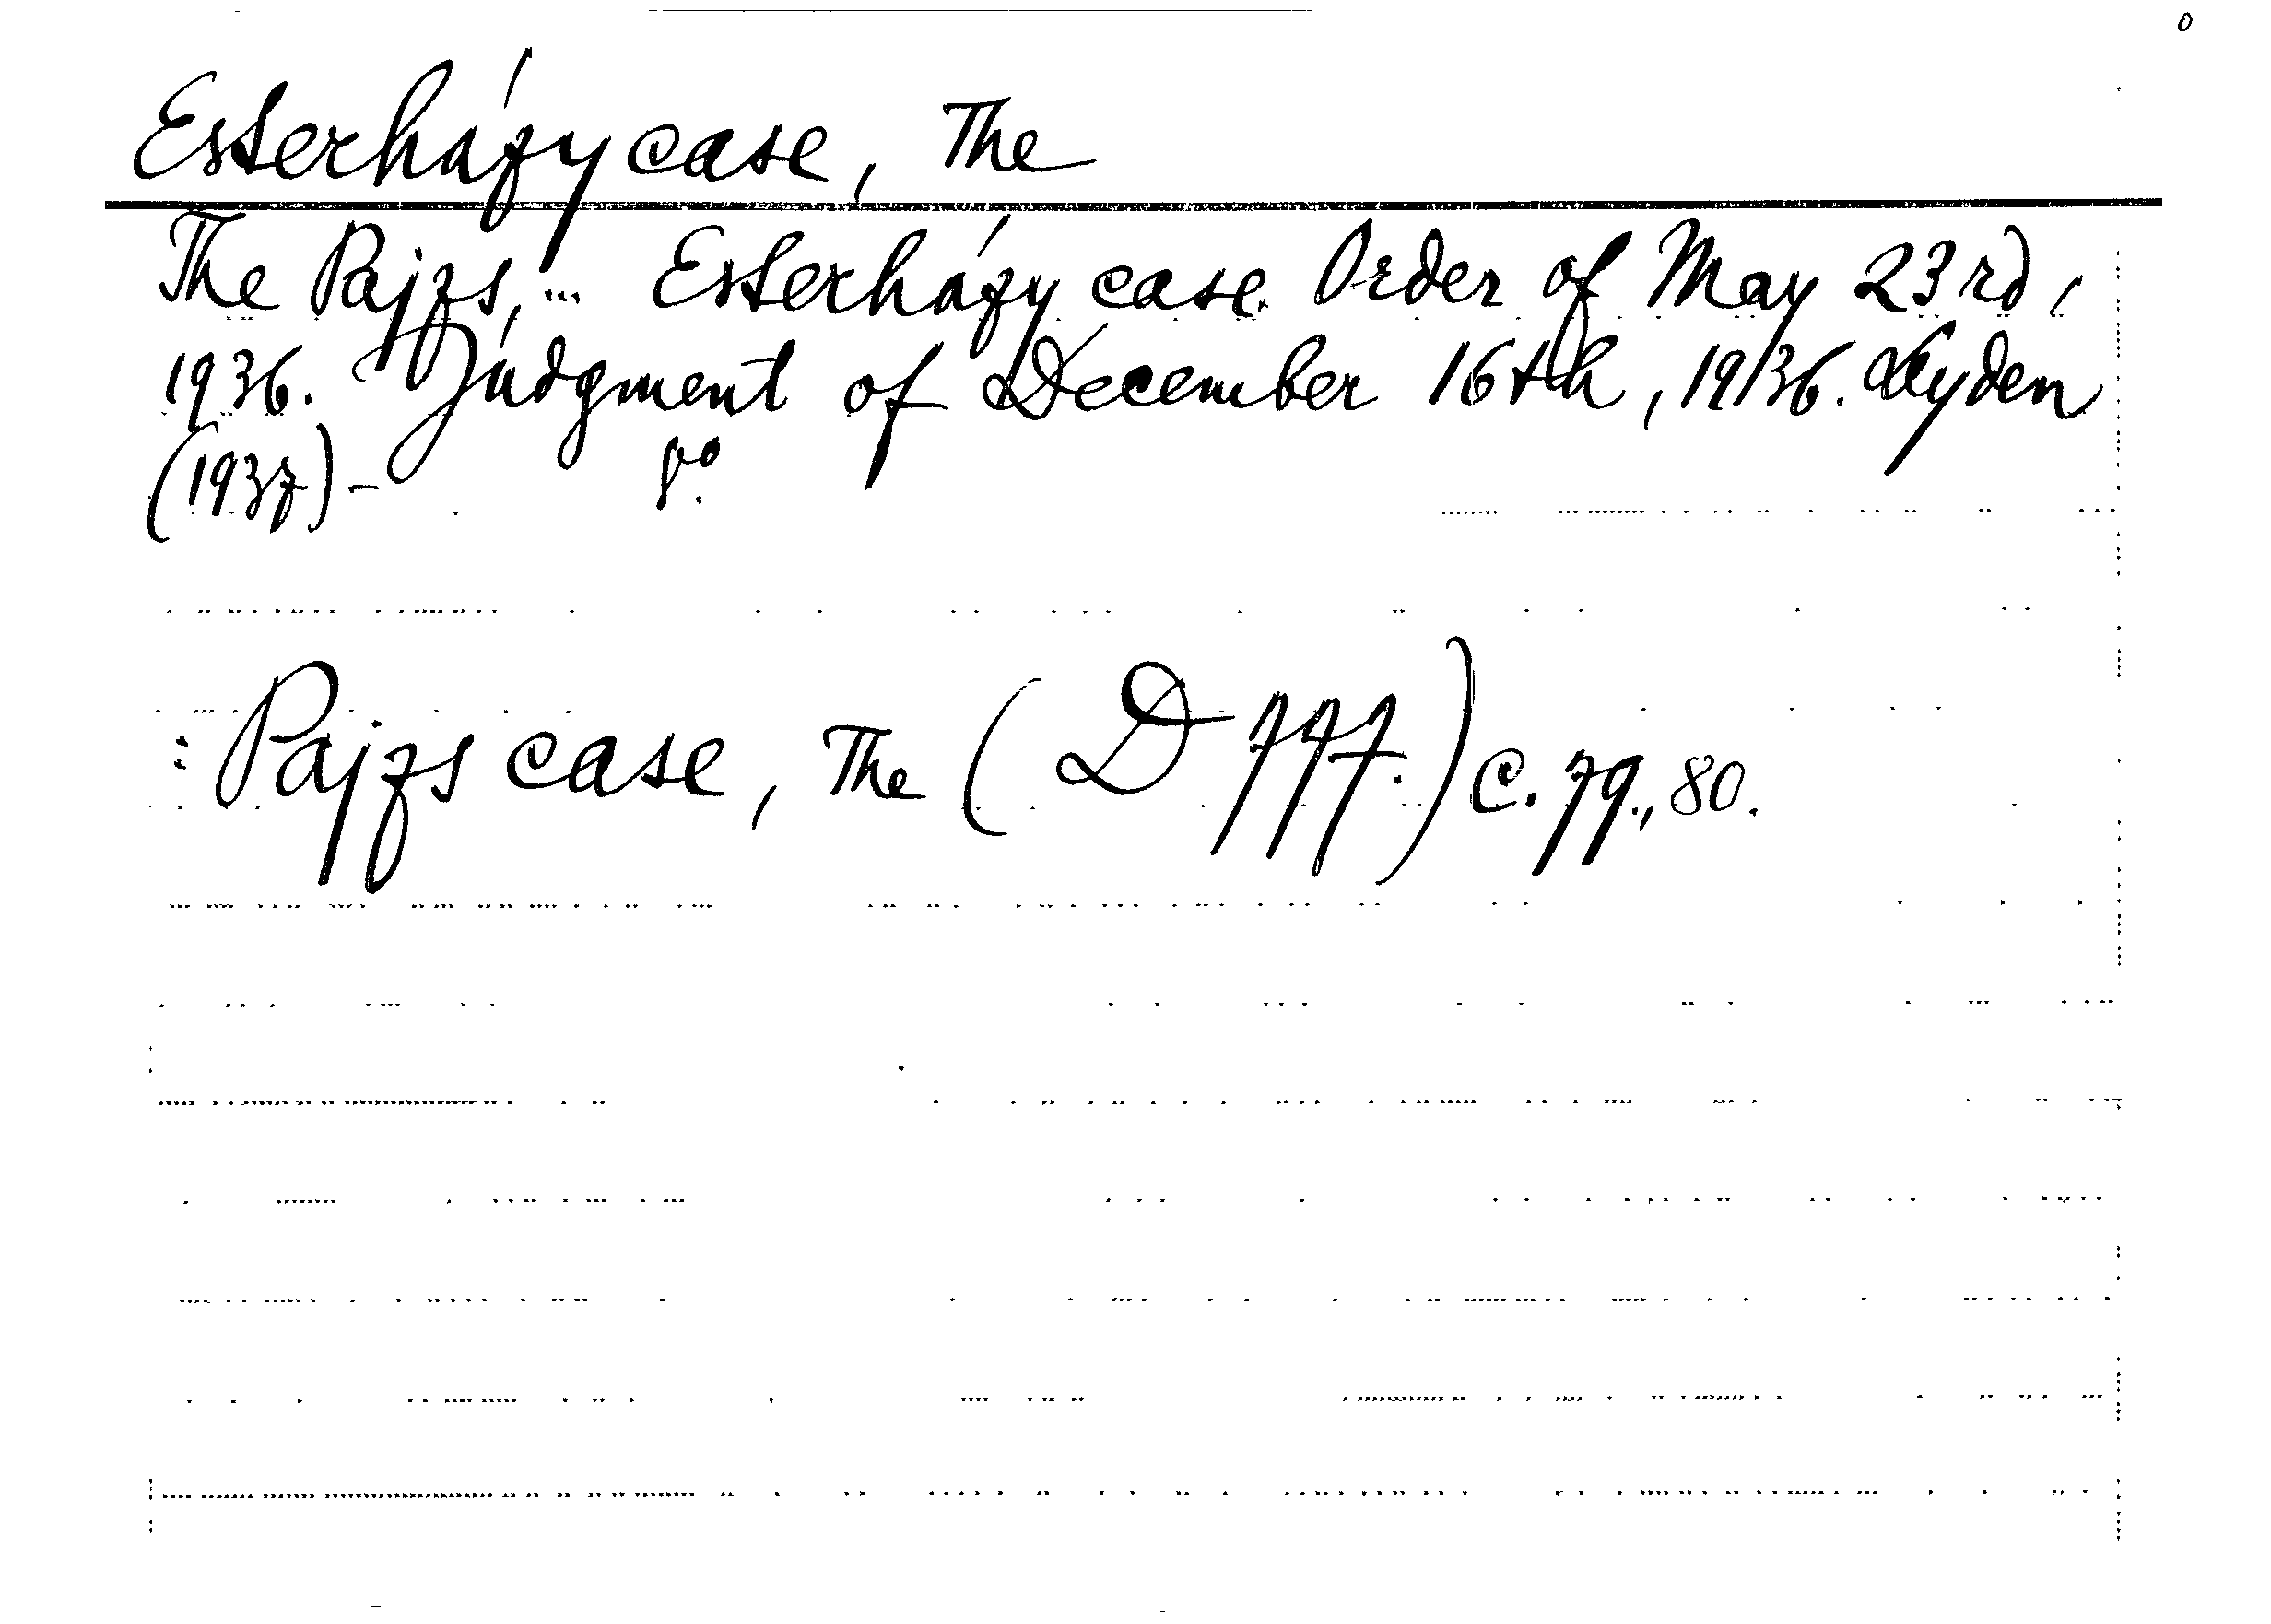 Esterházy case, The
The Pajzs, ... Esterházy case. Order of May 23rd,
1936. Judgment of December 16th, 1936. Leyden
(1937) - 8º.
: Pajzs case, The ( D 777.) C. 79., 80.